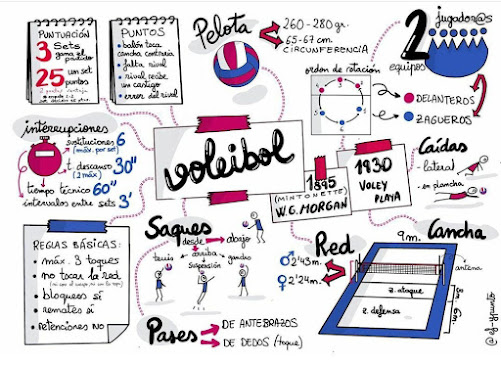 PUNTUACIÓN
3 Sets
gana el
partido
25 un set
puntos
PUNTOS
balón toca
cancha contraria
falta rival
rival recibe
un castigo
error del rival
Pelota
260-280 gr.
65-67 cm.
CIRCUNFERENCIA
2 equipos
jugador@s
orden de rotación
DELANTEROS
ZAGUEROS
interrupciones
sustituciones 6
(máx. por set)
t. descanso 30"
(2 máx)
tiempo técnico 60"
intervalos entre sets 3'
voleibol
1895
(MINTONETTE)
W.G. MORGAN
1930
VOLEY
PLAYA
Caídas
- lateral
- en plancha
REGLAS BÁSICAS:
máx. 3 toques
no tocar la red
bloqueos sí
remates sí
retenciones NO
Saques
desde
abajo
arriba
tenis
SUSPENSIÓN
gancho
Pases
DE ANTEBRAZOS
DE DEDOS (toque)
Red
♂ 2'43 m.
♀ 2'24 m.
Cancha
9 m.
antena
z. ataque
z. defensa
3m.
6m.